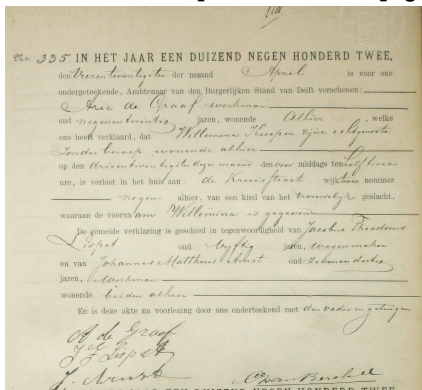 No. 335 IN HET JAAR EEN DUIZEND NEGEN HONDERD TWEE,
den Vierentwintigsten der maand April is voor ons
ondergeteekende, Ambtenaar van den Burgerlijken Stand van Delft verschenen:
Arie de Graaf werkman
oud negenentwintig jaren, wonende Alhier, welke
ons heeft verklaard, dat Willemina Kuiper zijne echtgenoote
zonder beroep wonende alhier
op den drieentwintigsten dezer maand des voor middags ten half twee
ure, is verlost in het huis aan de Kruisstraat wijk nommer
negen alhier, van een kind van het vrouwelijk geslacht,
waaraan de voornaam Willemina is gegeven
De gemelde verklaring is geschied in tegenwoordigheid van Jacobus Theodorus
Lispet oud vijftig jaren, wagenmaker
en van Johannes Mattheus Arnst oud zevenendertig
jaren, werkman
wonende beiden alhier
En is deze akte na voorlezing door ons onderteekend met den vader en getuigen
A de Graaf
J T Lispet
J. Arnst